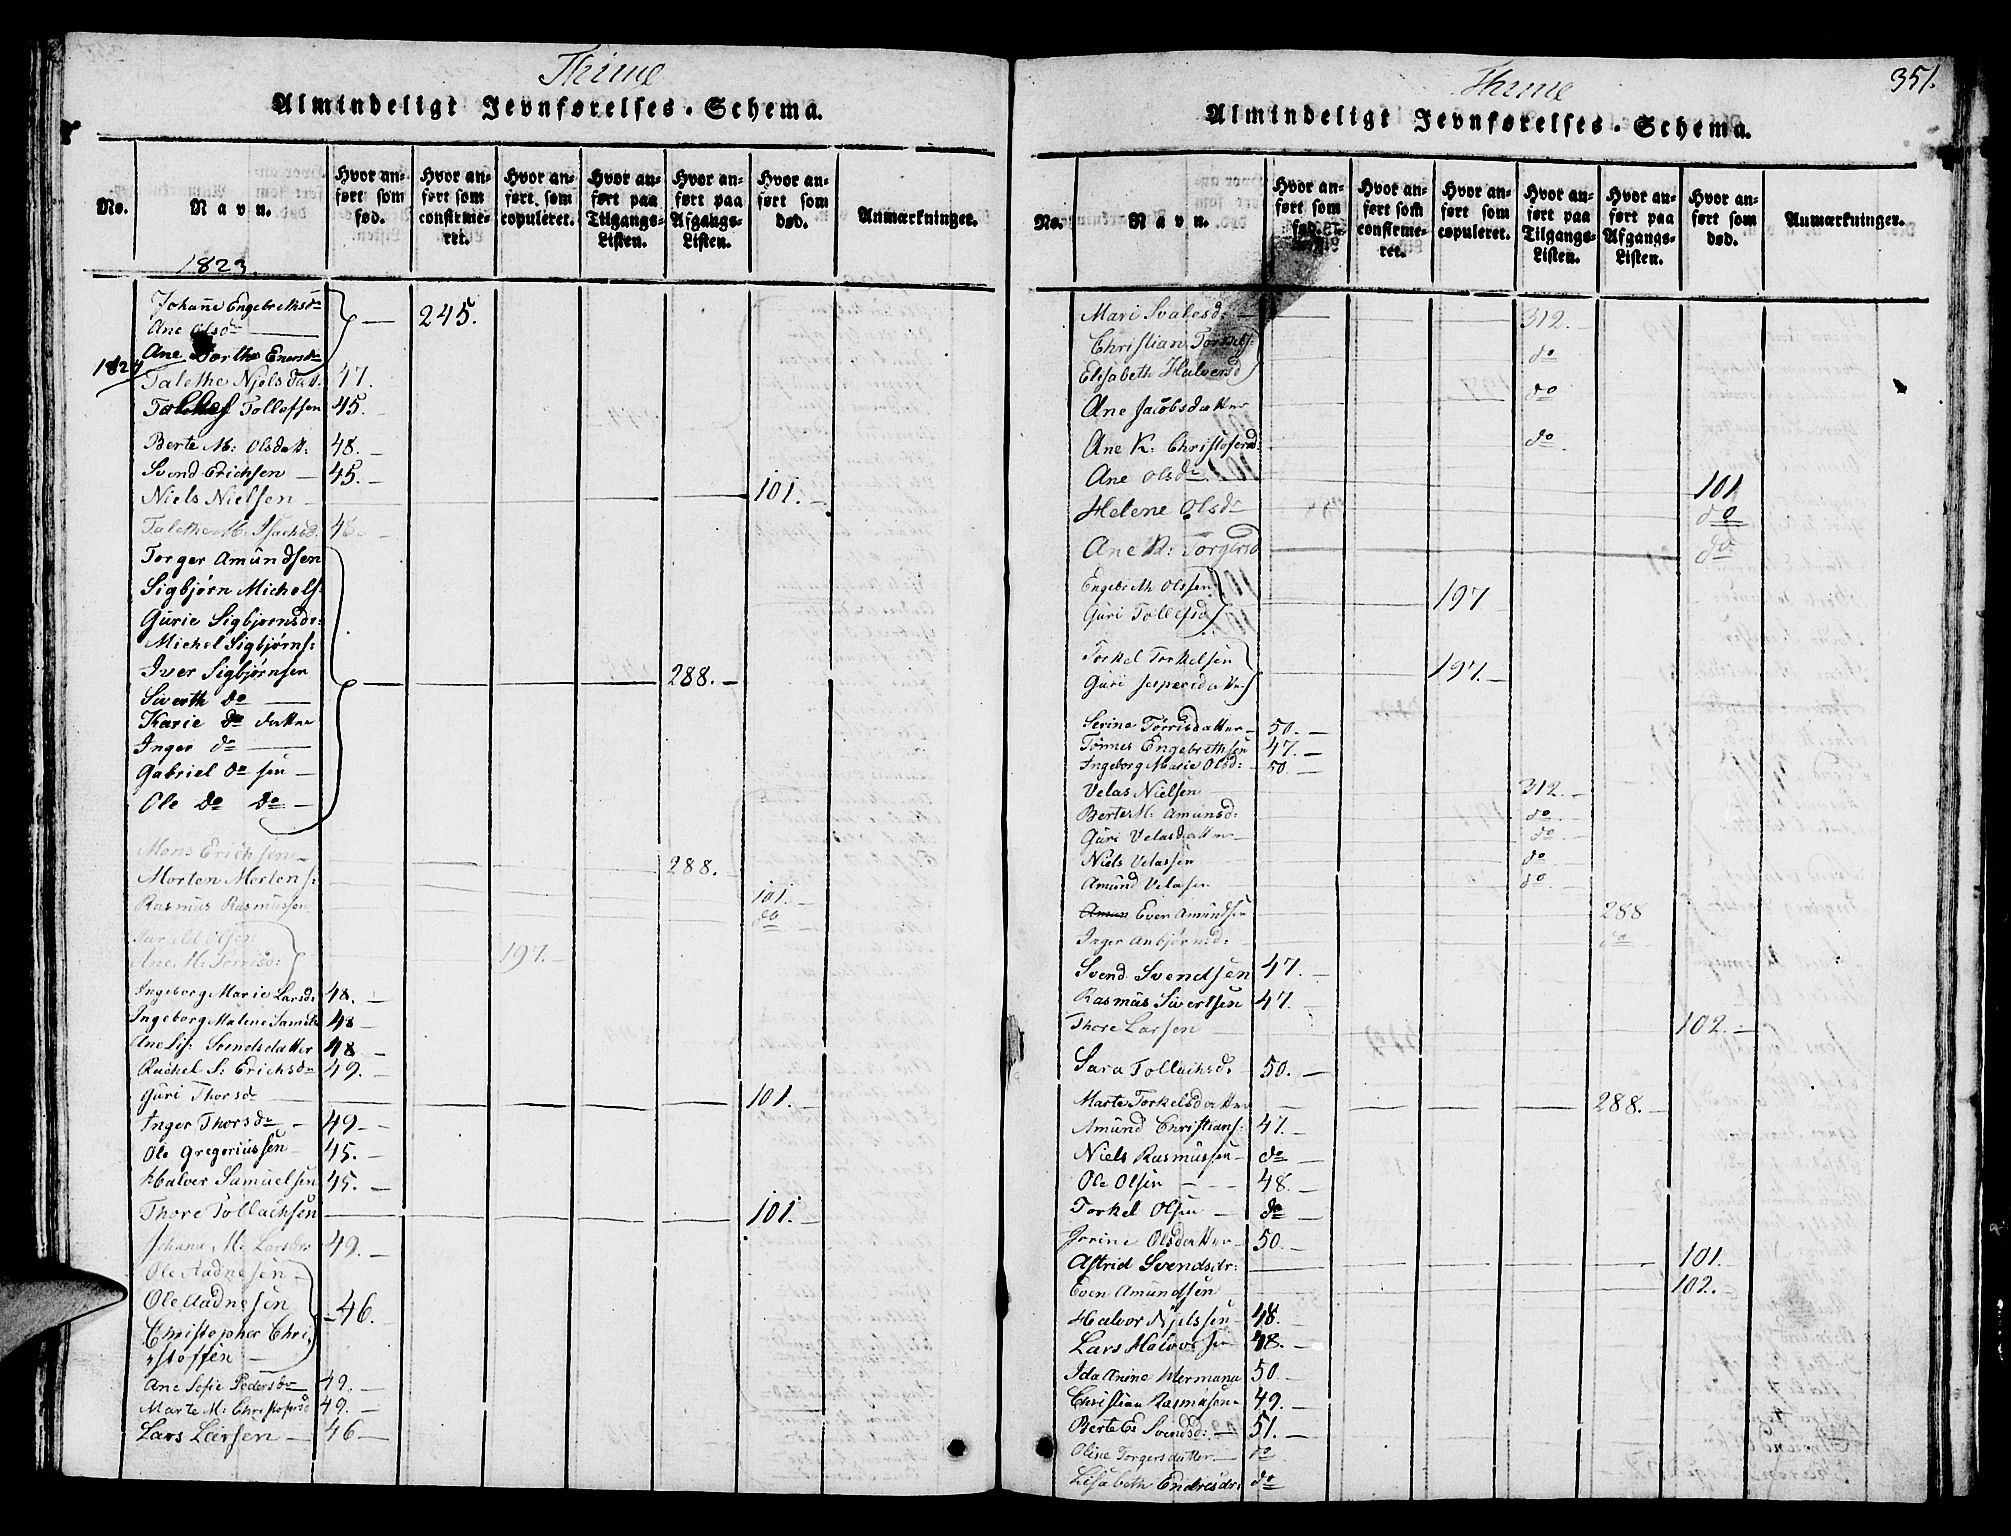 Thime
Almindeligt Jevnførelses-Schema.
No.
Navn.
Hvor anført som fød.
Hvor anført som confirmeret.
Hvor anført som copuleret.
Hvor anført paa Tilgangs-Listen.
Hvor anført paa Afgangs-Listen.
Hvor anført som død.
Anmærkninger.
1823.
Johanne Engebretsdr
Ane Olsdr — 245.
Ane Dorthe Enersdr
1824
Talethe Njelsdatt. 47.
Tollef Tollefsen 45.
Berte M: Olsdatt: 48.
Svend Erichsen 45.
Niels Nielsen 101.
Talethe M. Isachsd. 48.
Torger Amundsen
Sigbjørn Michels:
Gurie Sigbjørnsdr:
Michel Sigbjørns:
Iver Sigbjørnsen 288.
Siverth do
Karie do datter
Inger do
Gabriel do sen
Ole do do
Mons Erichsen
Morten Mortens: 288.
Rasmus Rasmussen 101.
do
Harald Olsen
Ane M: Torrisd: 197.
Ingeborg Marie Larsd: 48.
Ingeborg Malene Samuelsd 48
Ane Lis: Svendsdatter 48
Rachel S: Erichsdr 49.
Guri Thorsdr 101.
Inger Thorsdr 49
Ole Gregeriussen 45.
Halver Samuelsen 45.
Thore Tollachsen 101.
Johana M: Larsdr 49.
Ole Aadnesen
Ole Aadnesen 46.
Christopher Chri-
stoffen
Ane Sofie Pedersdr 49.
Marte M: Christofersd 49.
Lars Larsen 46
Thime
351.
Almindeligt Jevnførelses-Schema.
No.
Navn.
Hvor anført som fød.
Hvor anført som confirmeret.
Hvor anført som copuleret.
Hvor anført paa Tilgangs-Listen.
Hvor anført paa Afgangs-Listen.
Hvor anført som død.
Anmærkninger.
Mari Svalesd: 312.
Christian Torkels:
Elisabeth Halversd do
Ane Jacobsdatter do
Ane K: Christofersd: do
Ane Olsdr 101
Helene Olsdr do
Ane K: Torgersd do
Engebreth Olssen
Guri Tollefsd 197
Torkel Torkelsen
Guri Jespersdatter 197.
Serine Tørrisdatter 50.
Tønnes Engebrethsen 47.
Ingeborg Marie Olsd: 50.
Velas Nielsen 312.
Berte M: Amunsd: do
Guri Velasdatter do
Niels Velassen do
Amund Velasen do
Even Amundsen 288
Inger Anbjørnsd: do
Svend Svendsen 47.
Rasmus Sivertsen 47.
Thore Larsen 102.
Sara Tollachsd. 50.
Marte Torkelsdatter 288.
Amund Christians: 47.
Niels Rasmussen do
Ole Olsen 48.
Torkel Olsen do
Jorine Olsdatter 50.
Astrid Svendsdr: 101.
Even Amundsen 102.
Halvor Njelssen 48.
Lars Halvorsen 48.
Ida Anine Hermana 50
Christian Rasmusen 49.
Berte E: Svendsd: 51.
Oline Torgersdatter do
Lisabeth Endresdr: do